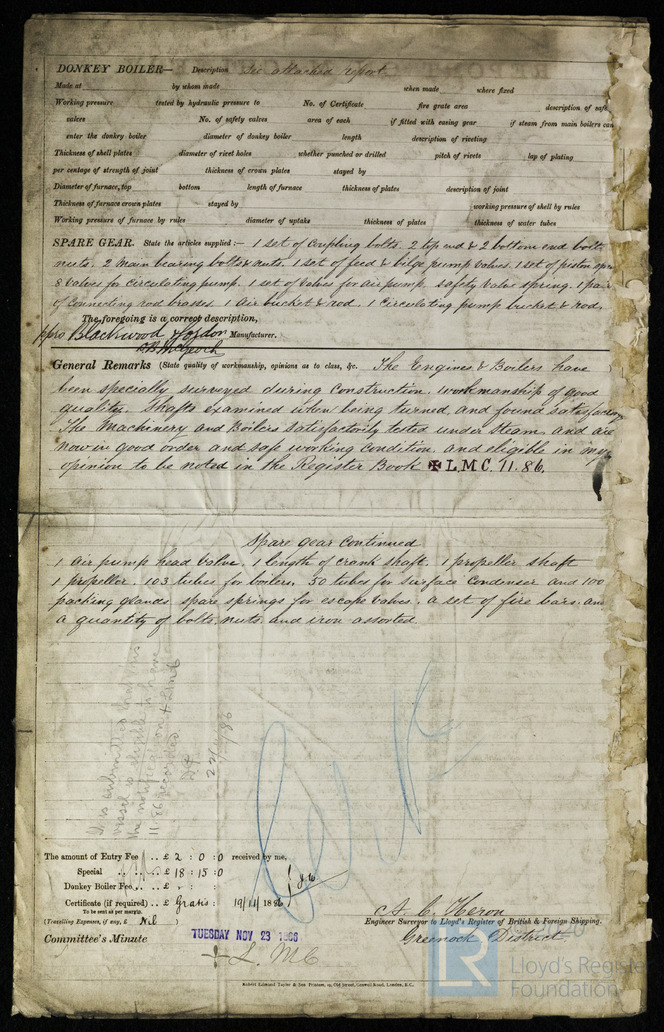 DONKEY BOILER— Description See attached report
Made at by whom made when made where fixed
Working pressure tested by hydraulic pressure to No. of Certificate fire grate area description of safe
valves No. of safety valves area of each if fitted with easing gear if steam from main boilers can
enter the donkey boiler diameter of donkey boiler length description of riveting
Thickness of shell plates diameter of rivet holes whether punched or drilled pitch of rivets lap of plating
per centage of strength of joint thickness of crown plates stayed by
Diameter of furnace, top bottom length of furnace thickness of plates description of joint
Thickness of furnace crown plates stayed by working pressure of shell by rules
Working pressure of furnace by rules diameter of uptake thickness of plates thickness of water tubes
SPARE GEAR. State the articles supplied:— 1 set of coupling bolts. 2 top end & 2 bottom end bolts
nuts. 2 main bearing bolts & nuts. 1 set of feed & bilge pump valves. 1 set of piston spr
8 valves for circulating pump. 1 set of valves for air pump. safety valve spring. 1 pair
of connecting rod brasses. 1 air bucket & rod. 1 circulating pump bucket & rod.
The foregoing is a correct description,
ppro Blackwood & Gordon Manufacturer.
General Remarks (State quality of workmanship, opinions as to class, &c. The Engines & Boilers have
been specially surveyed during construction. workmanship of good
quality. Shafts examined when being turned and found satisfactory
The Machinery and Boilers satisfactorily tested under steam and are
now in good order and safe working condition, and eligible in my
opinion to be noted in the Register Book ✠ L.M.C. 11.86.
Spare gear continued
1 air pump head valve. 1 length of crank shaft. 1 propeller shaft
1 propeller. 103 tubes for boilers. 50 tubes for surface condenser and 100
packing glands. spare springs for escape valves. a set of fire bars. and
a quantity of bolts, nuts, and iron assorted
It is submitted that this
vessel is eligible to have
the notification + LMC
11.86 recorded
22/11/86
The amount of Entry Fee .. £ 2 : 0 : 0 received by me,
Special .. £ 18 : 15 : 0
Donkey Boiler Fee .. £
Certificate (if required) .. £ Gratis : 19/11/1886
To be sent as per margin.
(Travelling Expenses, if any, £ Nil )
A. C. Heron
Engineer Surveyor to Lloyd's Register of British & Foreign Shipping.
Greenock District
Committee's Minute TUESDAY NOV 23 1886
+ L. M C
Robert Edmund Taylor & Son Printers, 19, Old Street, Goswell Road, London, E.C.
LR
Lloyd's Register
Foundation